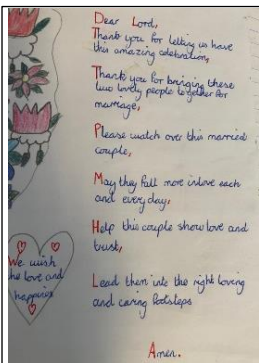 Dear Lord,
Thank you for letting us have
this amazing celebration,
Thank you for bringing these
two lovely people together for
marriage,
Please watch over this married
couple,
May they fall more inlove each
and every day,
Help this couple show love and
trust,
Lead them into the right loving
and caring footsteps
Amen.
We wish
the love and
happiness